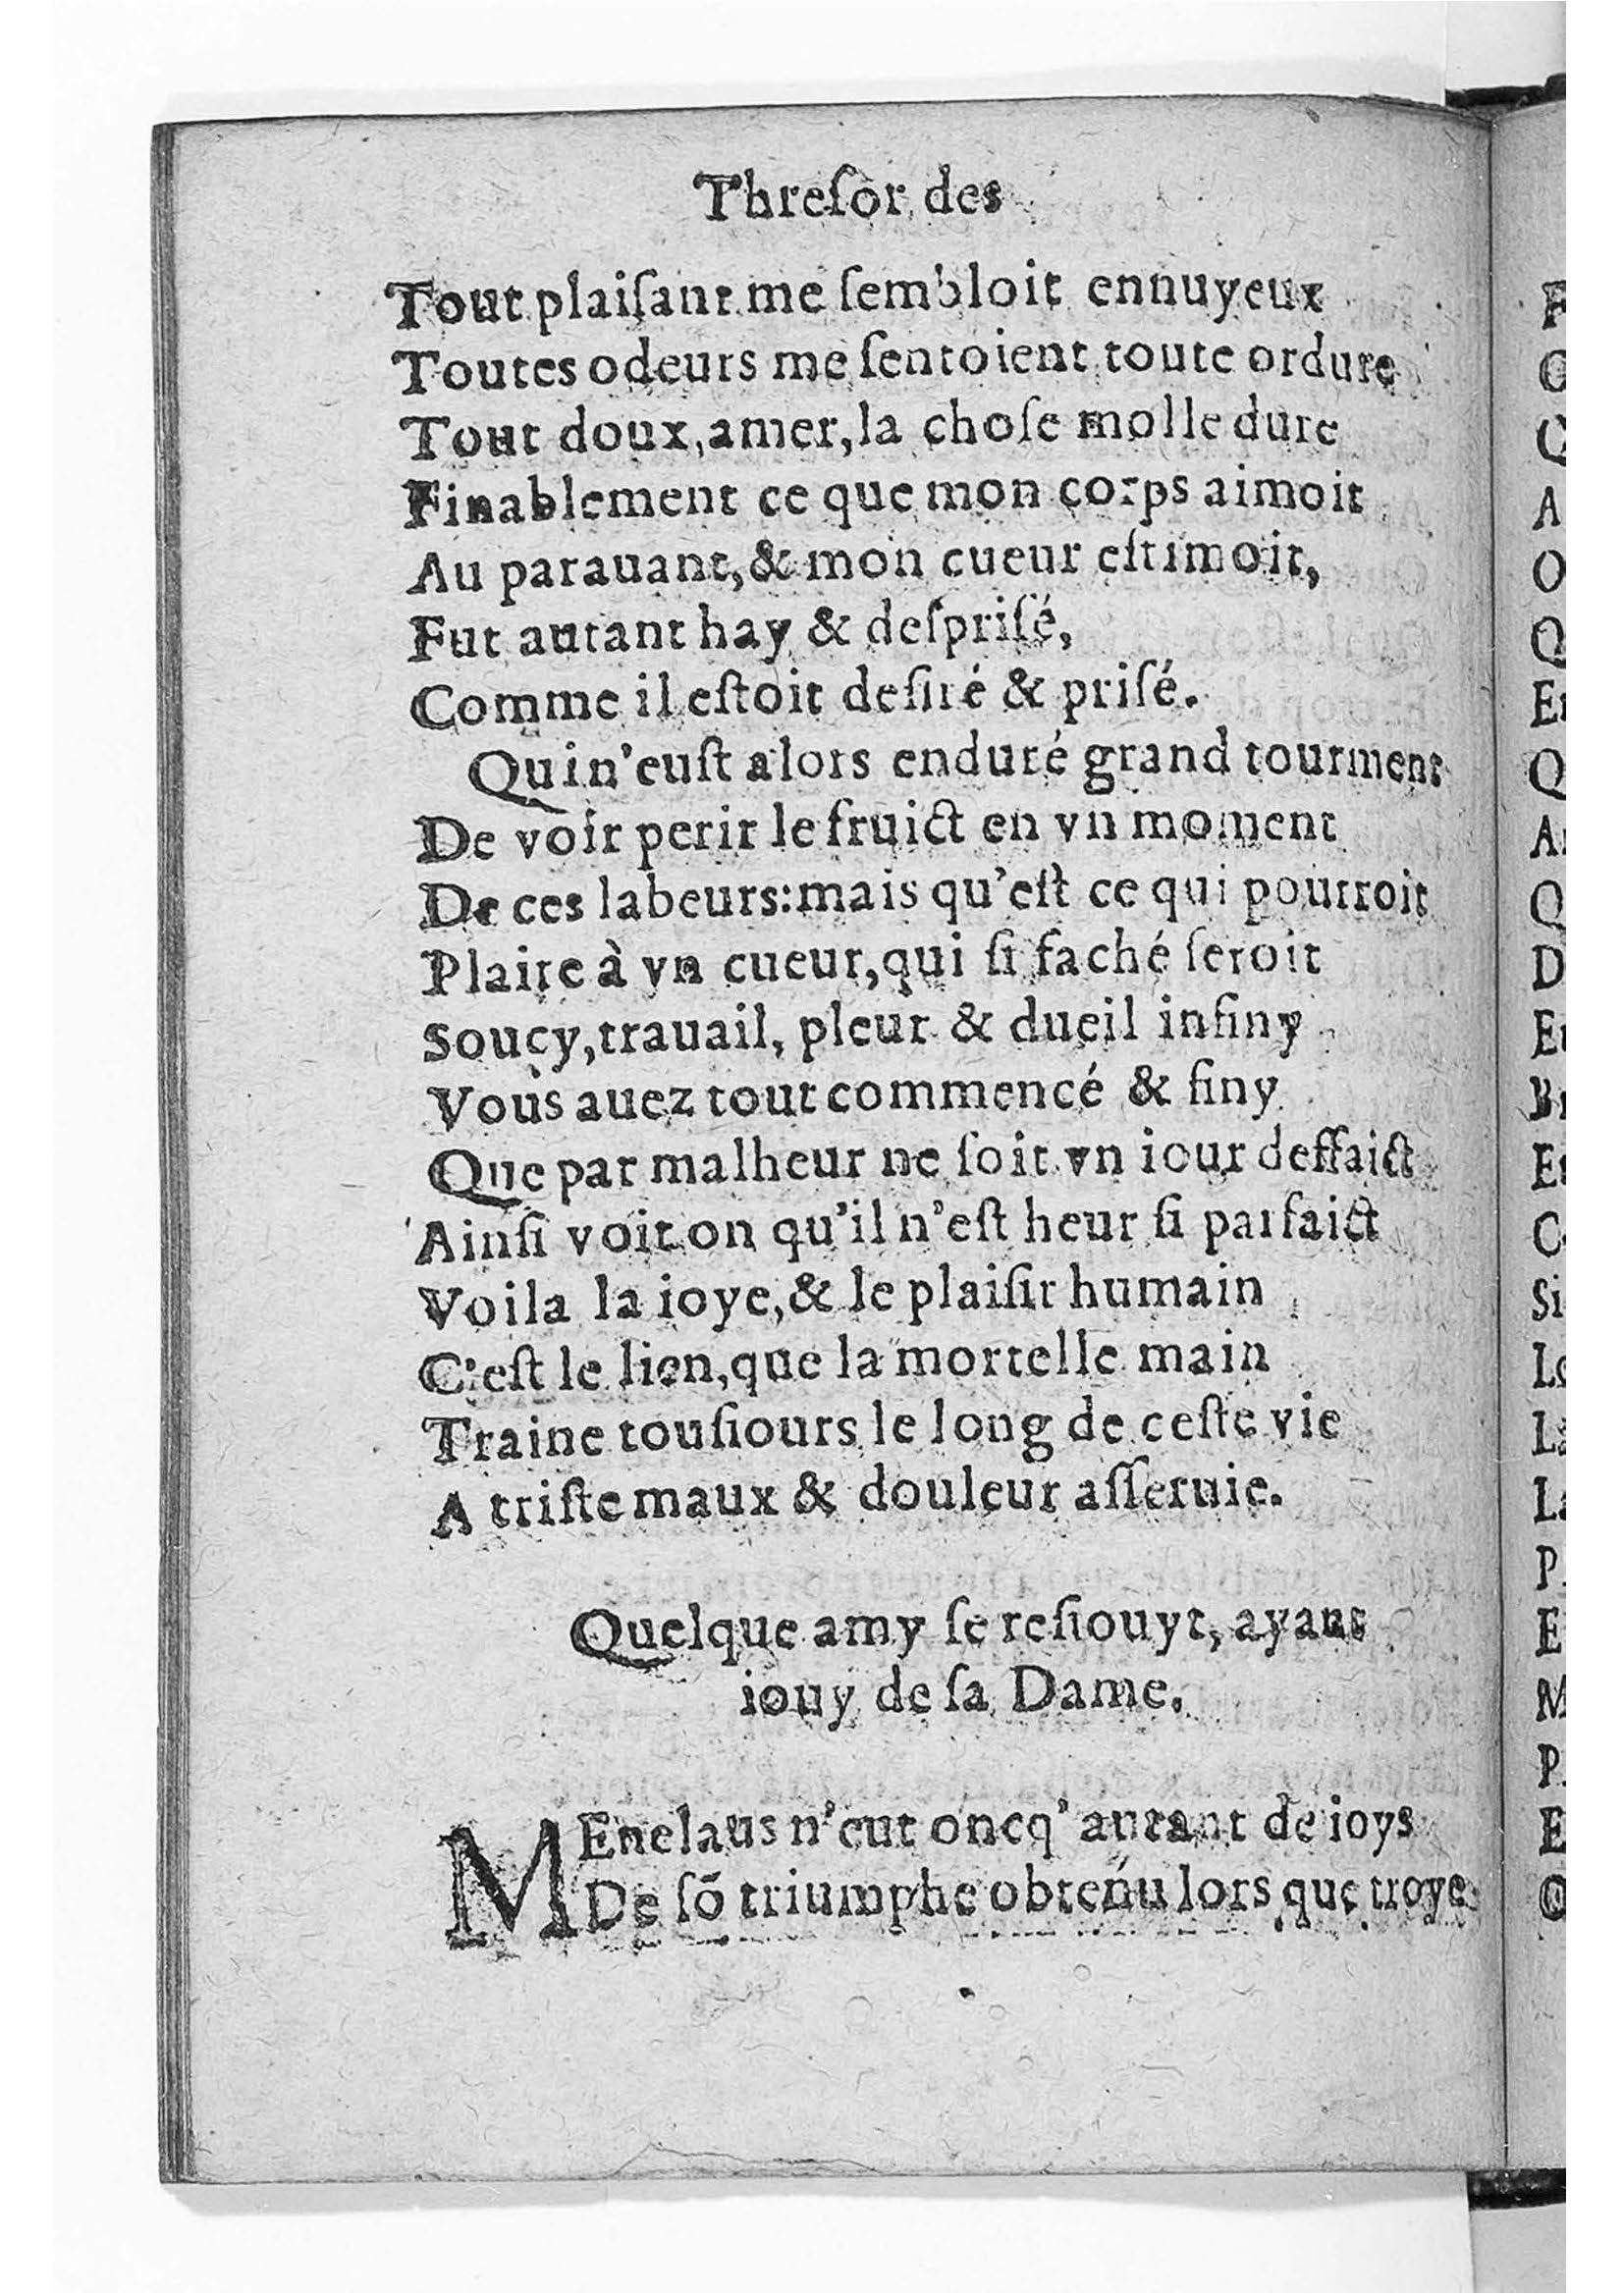 Threſor des
Tout plaiſant me ſembloit ennuyeux
Toutes odeurs me ſentoient toute ordure
Tout doux, amer, la choſe molle dure
Finablement ce que mon corps aimoit
Au parauant, & mon cueur eſtimoit,
Fut autant hay & deſpriſé,
Comme il eſtoit deſiré & priſé.
Qui n'euſt alors enduré grand tourment
De voir perir le fruict en vn moment
De ces labeurs: mais qu'eſt ce qui pourroit
Plaire à vn cueur, qui ſi faché ſeroit
Soucy, trauail, pleur & dueil infiny
Vous auez tout commencé & finy
Que par malheur ne ſoit vn iour deffaict
Ainſi voit on qu'il n'eſt heur ſi parfaict
Voila la ioye, & le plaiſir humain
C'eſt le lien, que la mortelle main
Traine touſiours le long de ceſte vie
A triſte maux & douleur aſſeruie.
Quelque amy ſe reſiouyt, ayant
iouy de ſa Dame.
MEnelaus n'eut oncq' autant de ioys
De ſõ triumphe obtenu lors que troye